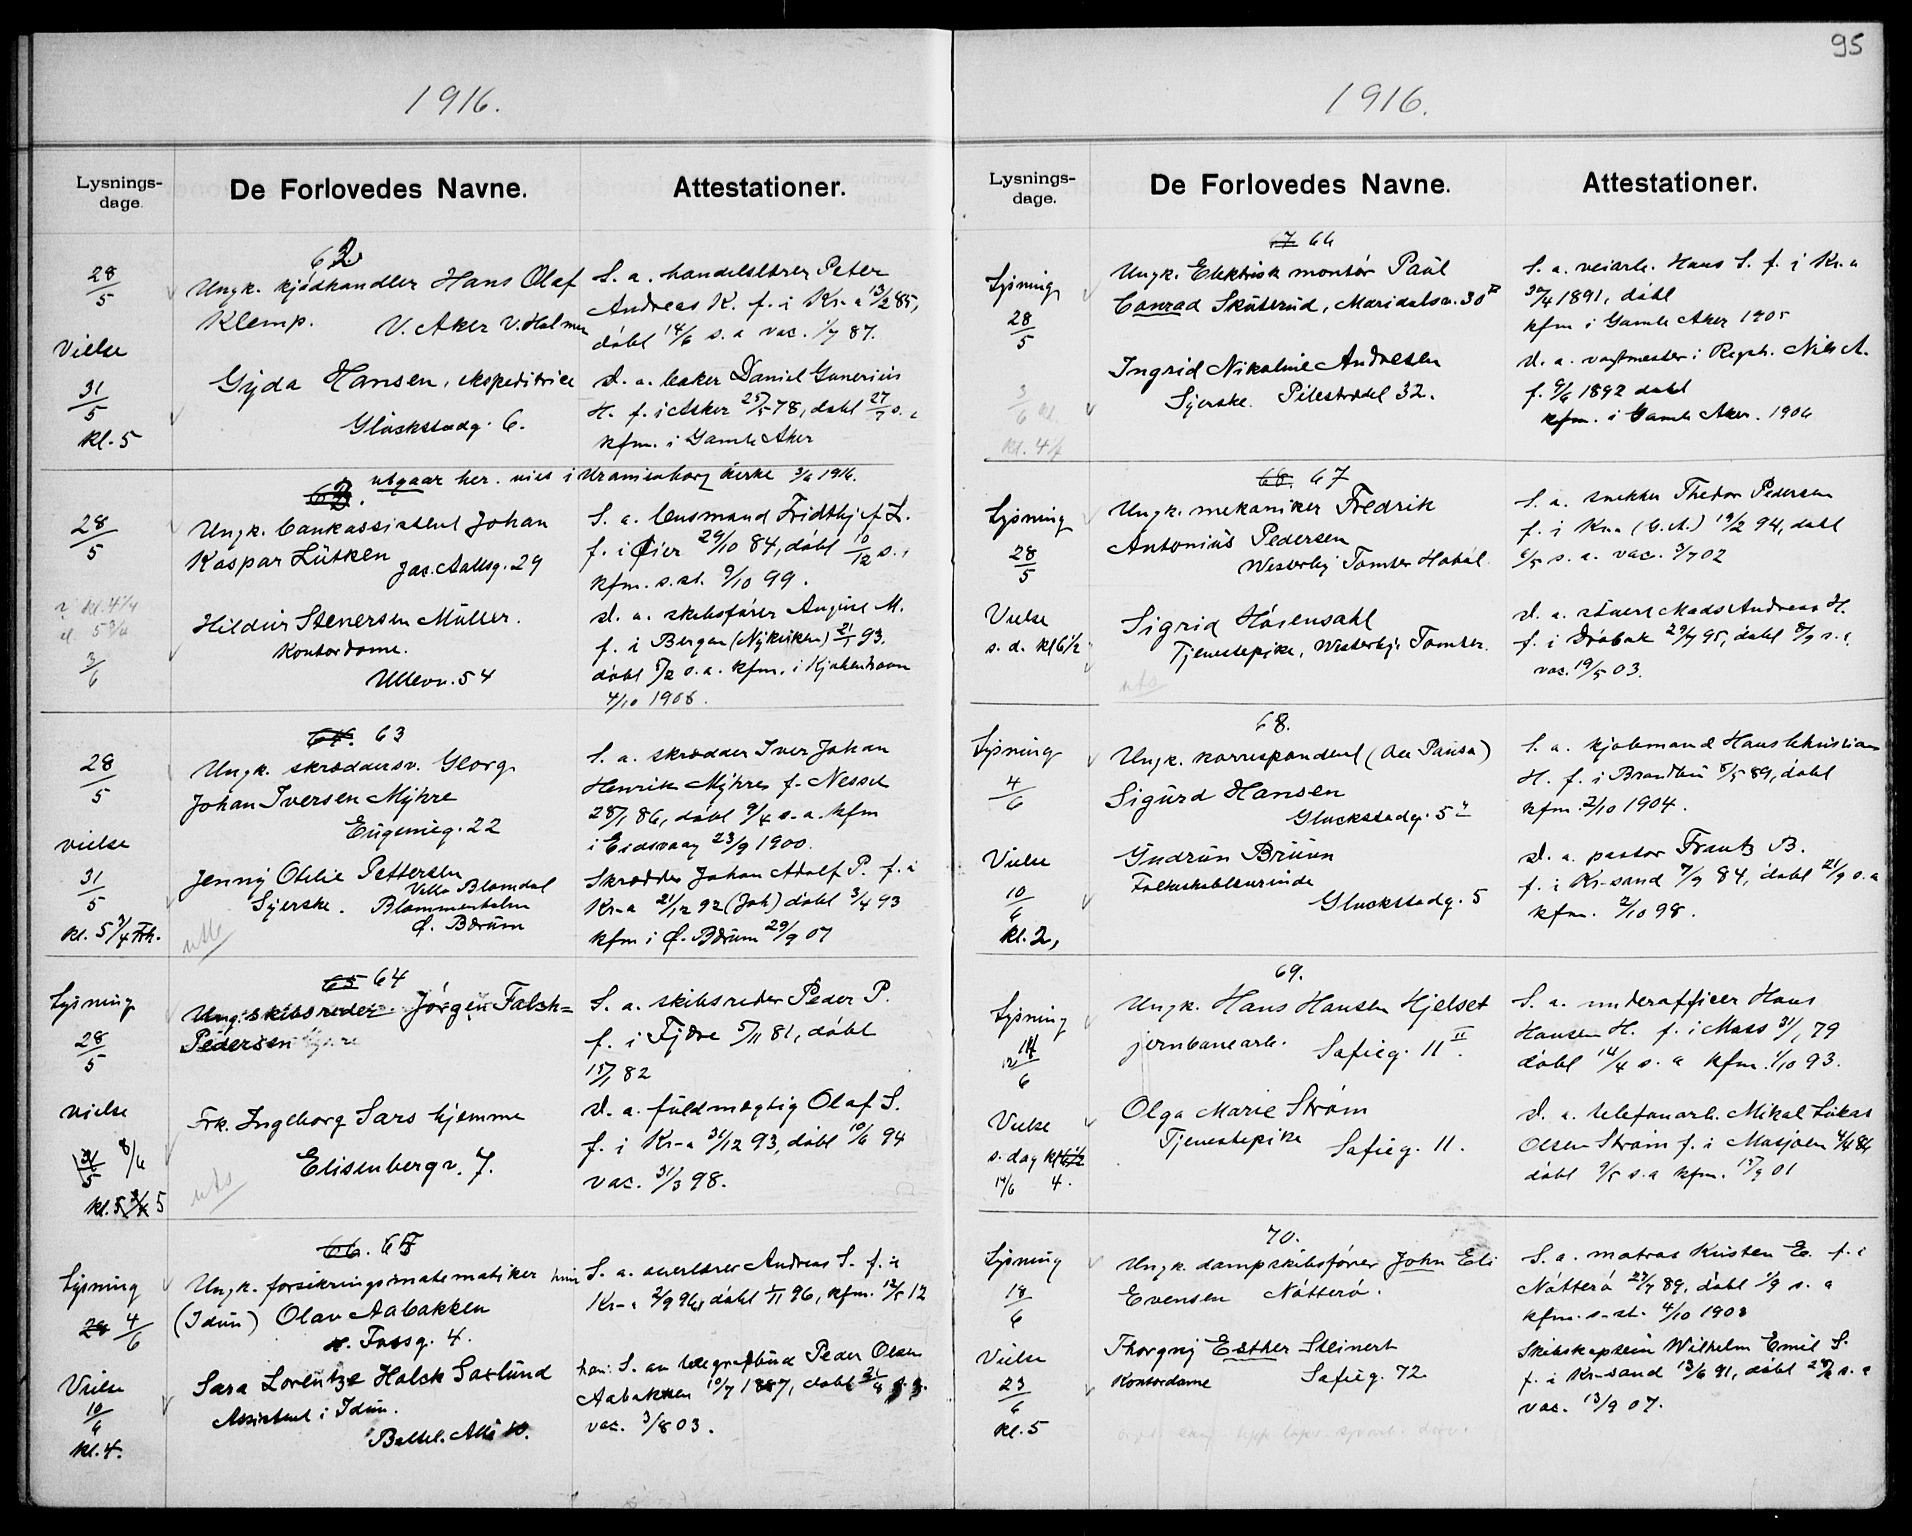 95
1916.
Lysnings-
dage.
De Forlovedes Navne.
Attestationer.
62
28/5
Ungk. kjødhandler Hans Olaf
Klemp. V. Aker V. Holmen
S. a. handelslærer Peter
Andreas K. f. i Kr.a 13/2 85,
døbt 14/6 s. a vac. 1/7 87.
Vielse
31/5
kl. 5
Gyda Hansen, ekspeditrice
Glückstadg. 6.
d. a. baker Daniel Gunerius
H. f. i Asker 25/5 78, døbt 27/7 s. a
kfm. i Gamle Aker
utgaar her. vies i Uranienborg kirke 3/6 1916.
63.
28/5
Ungk. bankassistent Johan
Kaspar Lütken
Jac. Aallsg. 29
S. a. lensmand Fridthjof L.
f. i Øier 29/10 84, døbt 10/12 s. a
kfm. s. st. 9/10 99.
kl. 4 1/4
el. 5 3/4
3/6
Hildur Stenersen Müller.
Kontordame.
Ullevv. 54
d. a. skibsfører August M.
f. i Bergen (Nykirken) 21/1 93.
døbt 5/2 s. a. kfm. i Kjøbenhavn
4/10 1908.
64. 63
28/5
Ungk. skræddersv. Georg
Johan Iversen Myhre
Eugenieg. 22
S. a. skrædder Iver Johan
Henrik Myhre f. Nesset
28/1 86, døbt 9/4 s. a. kfm
i Eidsvaag 23/9 1900.
vielse
31/5
kl. 5 3/4 Frh.
Jenny Otilie Pettersen
Syerske.
Villa Blomdal
Blommenholm
Ø. Bærum
Skrædder Johan Adolf P. f. i
Kr-a 21/12 92 (Joh) døbt 3/4 93
kfm i Ø. Bærum 29/9 07
65 64
Lysning
28/5
Ung. skibsreder Jørgen Falch-
Pedersen
S. a. skibsreder Peder P.
f. i Fjære 5/11 81, døbt
15/1 82
vielse
31/5 8/6
kl. 5 3/4 5
Frk. Ingeborg Sars hjemme
Elisenbergv. 7.
d. a. fuldmægtig Olaf S.
f. i Kr-a 31/12 93, døbt 10/6 94
vac. 31/3 98.
66. 65
Lysning
28 4/6
Ungk. forsikringsmatematiker
(Idun) Olav Aabakken
n. Fossg. 4.
hun S. a. overlærer Andreas S. f. i
Kr-a 2/9 96, døbt 1/11 96, kfm. 12/5 12
Vielse
10/6
kl. 4.
Sara Lorentze Holck Saxlund
Assistent i Idun.
Balth. Allé 10.
han: S. av telegrafbud Peder Olsen
Aabakken 10/7 1887, døbt 21/9 s. a.
vac. 3/8 03.
1916.
Lysnings-
dage.
De Forlovedes Navne.
Attestationer.
67 66
Lysning
28/5
Ungk. Elektrisk montør Paul
Conrad Skuterud, Maridalsv. 30 II
S. a. veiarb. Hans S. f. i Kr. a
30/4 1891, døbt
kfm i Gamle Aker 1905
3/6
kl. 4 1/2
Ingrid Nikoline Andresen
Syerske. Pilestrædet 32.
d. a. vagtmester i Regstr. Nils A.
f. 9/6 1892 døbt
kfm. i Gamle Aker. 1906
68. 67
Lysning
28/5
Ungk. mekaniker Fredrik
Antonius Pedersen
Westerby Tomter Hobøl
S. a. snekker Thedor Pedersen
f. i Kr.a (G. A.) 19/2 94, døbt
6/5 s. a. vac. 3/7 02
Vielse
s. d. kl 6 1/2
Sigrid Høsensahl
Tjenestepike, Westerby Tomter.
d. a. stuert Mads Andreas H.
f. i Drøbak 29/7 95, døbt 8/9 s. a,
vac. 19/5 03.
68.
Lysning
4/6
Ungk. korrespondent
Sigurd Hansen
Gluckstadg. 5
S. a. kjøbmand Hans Christian
H. f. i Brandbu 8/5 89, døbt
kfm. 2/10 1904.
Vielse
10/6
kl. 2,
Gudrun Bruun
Folkeskolelærerinde
Gluckstadg. 5
d. a. pastor Frantz B.
f. i Kr-sand 7/7 84, døbt 21/9 s. a
kfm. 2/10 98.
69.
Lysning
11/6
Ungk. Hans Hansen Hjelset
jernbanearb. Sofieg. 11 II.
S. a. underofficer Hans
Hansen H. f. i Moss 31/1 79
døbt 14/4 s. a kfm. 1/10 93.
Vielse
s. dag kl 6 1/2
17/6 4.
Olga Marie Strøm
Tjenestepike Sofieg. 11.
d. a. telefonarb. Mikal Lukas
Olsen Strøm f. i Mosjøen 4/4 86
døbt 9/5 s. a kfm. 15/9 01
70.
Lysning
18/6
Ungk. dampskibsfører John Eli
Evensen Nøtterø.
S. a. matros Kristen E. f. i
Nøtterø 27/7 89, døbt 1/9 s. a
kfm. s. st. 4/10 1903
Vielse
23/6
kl. 5
Thorgny Esther Steinert
Kontordame Sofieg. 72
Skibskaptein Wilhelm Emil S.
f. i Kr-sand 13/6 91, døbt s. a
vac. 13/9 07.